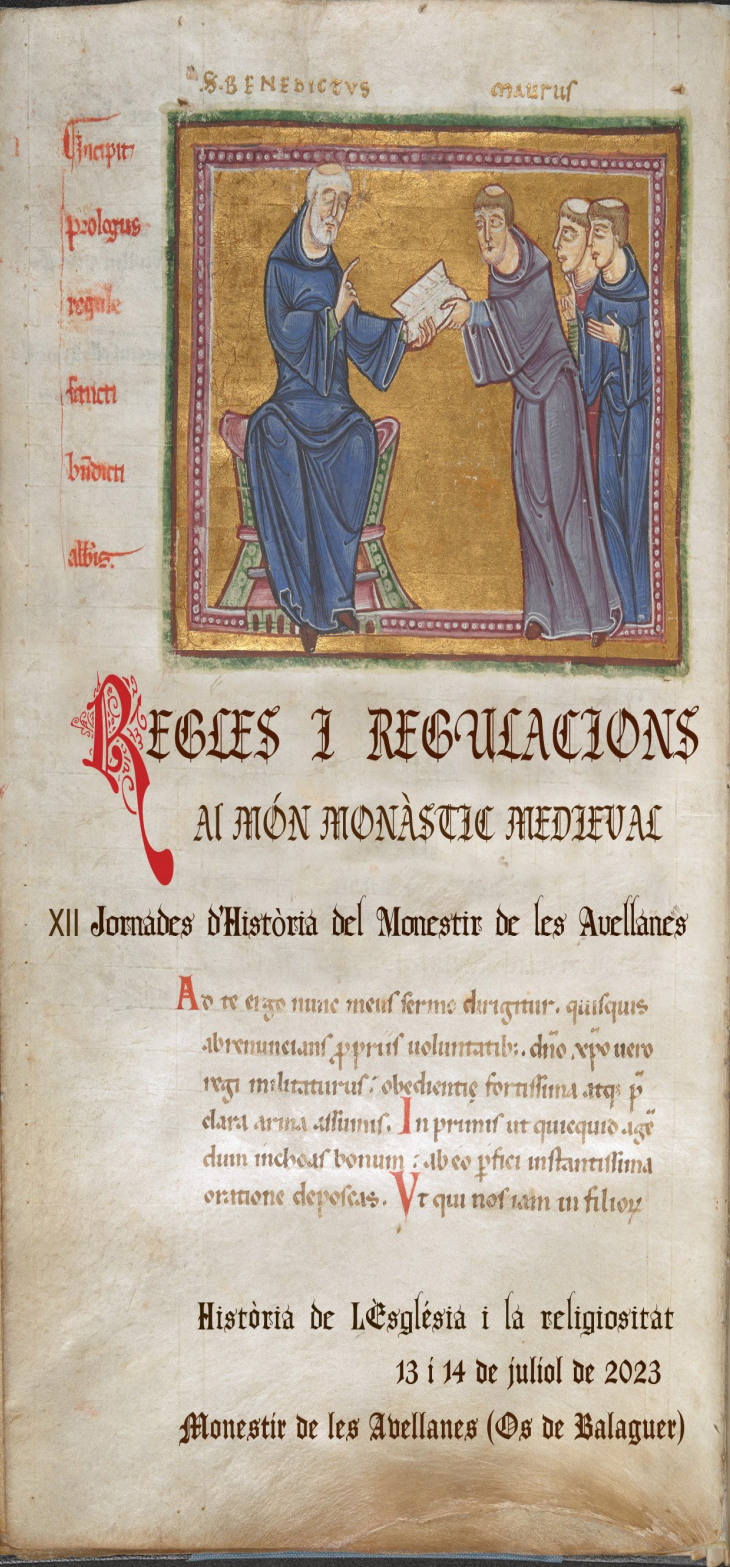 S. BENEDICTVS MAURUS
Incipit
prologus
regule
sancti
bn̄dicti
abb̄is.
REGLES I REGULACIONS
Al MÓN MONÀSTIC MEDIEVAL
XII Jornades d'Història del Monestir de les Avellanes
Ad te ergo nunc meuſ ſermo dirigitur. quiſquis
abrenuncianſ ꝓpriiſ uoluntatib;. dn̄o xp̄o uero
regi militaturus. obedientię fortiſſima atq; p̄
clara arma aſſumis. In primis ut quicquid agē
dum inchoas bonum : ab eo ꝑfici inſtantiſſima
oratione depoſcas. Vt qui noſ iam in filioꝝ
Història de L'Església i la religiositat
13 i 14 de juliol de 2023
Monestir de les Avellanes (Os de Balaguer)